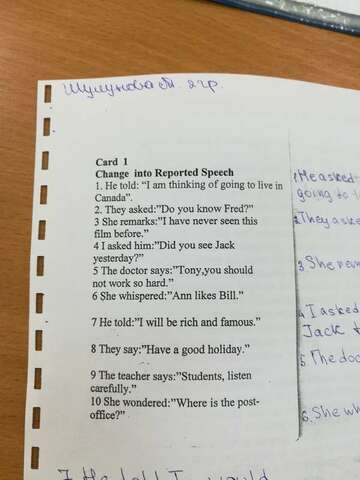 Шулунова М. 2 гр.
Card 1
Change into Reported Speech
1. He told: “I am thinking of going to live in
Canada”.
2. They asked:”Do you know Fred?”
3 She remarks:”I have never seen this
film before.”
4 I asked him:”Did you see Jack
yesterday?”
5 The doctor says:”Tony,you should
not work so hard.”
6 She whispered:”Ann likes Bill.”
7 He told:”I will be rich and famous.”
8 They say:”Have a good holiday.”
9 The teacher says:”Students, listen
carefully.”
10 She wondered:”Where is the post-
office?”
1 He asked
going to
2 They aske
3 She rem
4 I asked
Jack
5. The doc
6. She wh
7. He tell I would